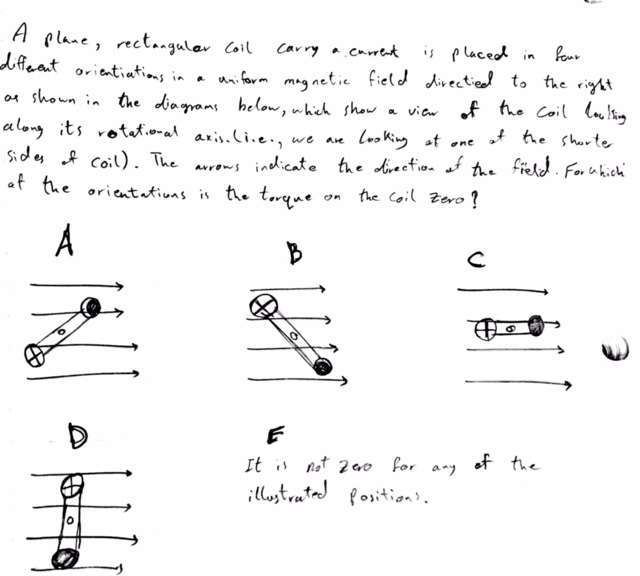 A plane, rectangular coil carry a current is placed in four
different orientiations in a uniform magnetic field directied to the right
as shown in the diagrams below, which show a view of the coil looking
along its rotational axis. (i.e., we are looking at one of the shorter
sides of coil). The arrows indicate the direction of the field. For which
of the orientations is the torque on the coil zero?
A
B
C
D
E
It is not zero for any of the
illustrated positions.